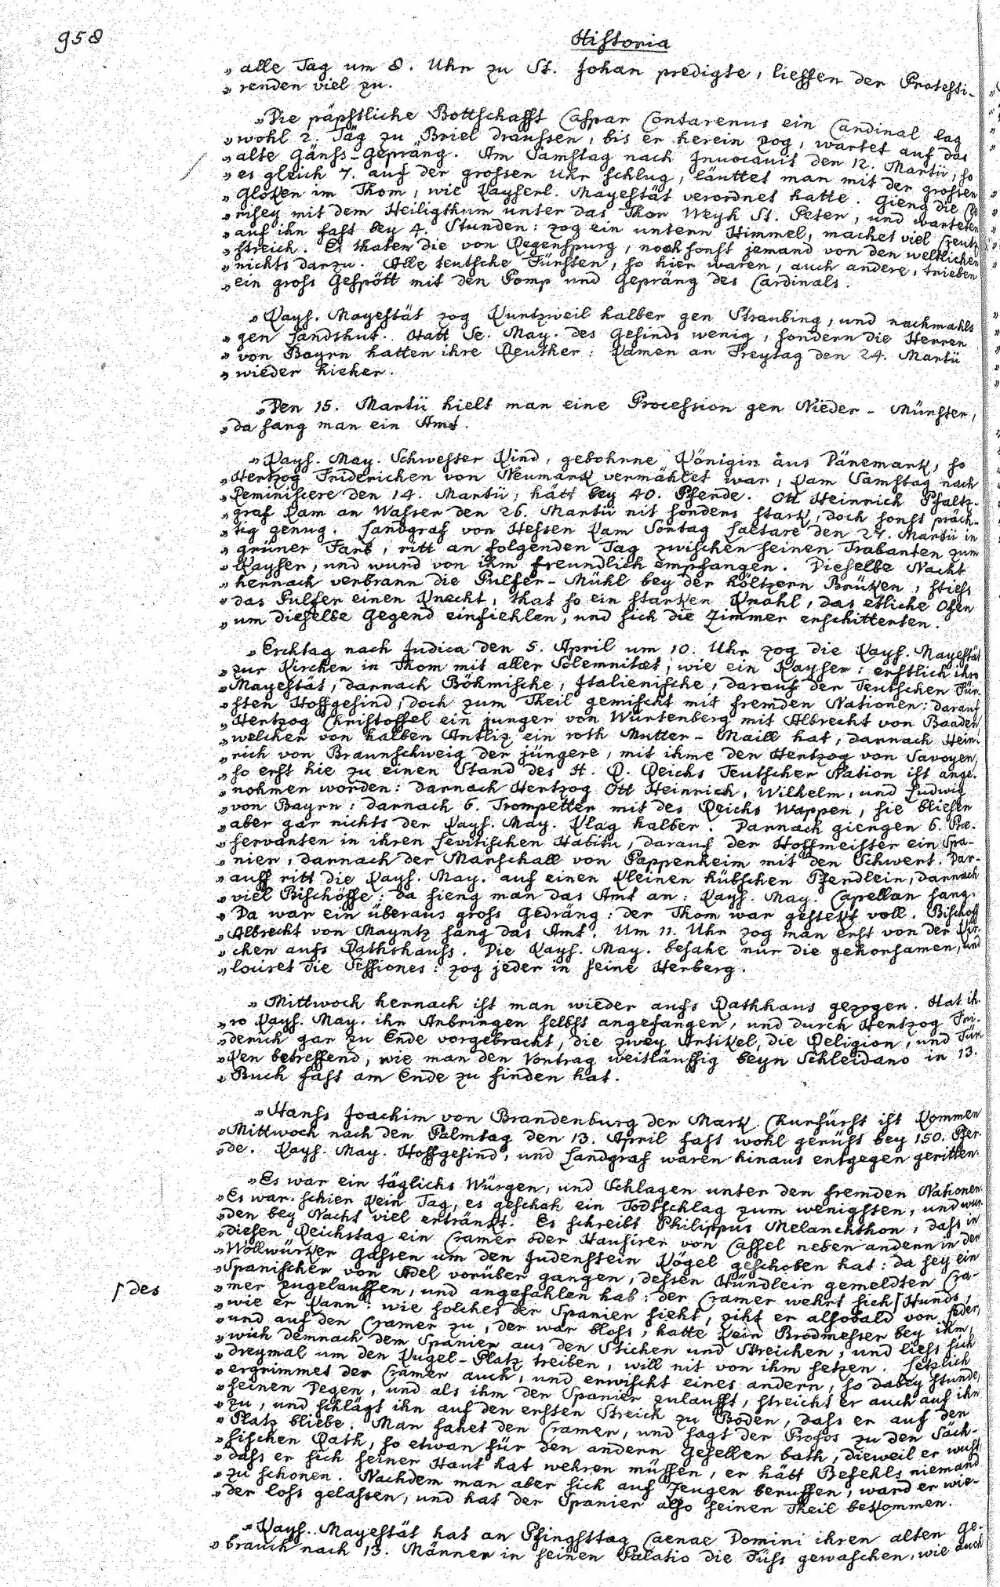 958
Historia
„ alle Tag um 8. Uhr zu St. Johan predigte, lieffen der Protesti-
„ renden viel zu.
„Die päpstliche Bottschafft Caspar Contarenus ein Cardinal lag
„ wohl 2. Täg zu Briel draussen, bis er herein zog, wartet auf das
„ alte Gänss-Gepräng. Am Samstag nach Invocavit den 12. Martii, so
„ es gleich 7. auf der grossen Uhr schlug, läuttet man mit der grossen
„ Gloken im Thom, wie Kayserl. Mayestät verordnet hatte. Gieng die Cle-
„ risey mit dem Heiligthum unter das Thor Weyh St. Peter, und warteten
„ auf ihn fast bey 4. Stunden: zog ein untern Himmel, machet viel Creutz-
„ streich. Es thaten die von Regenspurg, noch sonst jemand von den weltlichen
„ nichts darzu. Alle teutsche Fürsten, so hier waren, auch andere, trieben
„ ein gross Gespött mit den Pomp und Gepräng des Cardinals.
„ Kays. Mayestät zog Kurtzweil halber gen Straubing, und nachmahls
„ gen Landshut. Hatt Se. May. des Gesinds wenig, sondern die Herren
„ von Bayrn hatten ihre Reuther: Kamen an Freytag den 24. Martii
„ wieder hieher.
„Den 15. Martii hielt man eine Procession gen Nieder-Münster,
„ da sang man ein Amt.
„Kays. May. Schwester Kind, gebohrne Königin aus Dänemark, so
„ Hertzog Friderichen von Neumark vermählet war, kam Samstag nach
„ Reminiscere den 14. Martii, hätt bey 40. Pferde. Ott Heinrich Pfaltz-
„ graf kam an Wasser den 26. Martii nit sonders stark, doch sonst präch-
„ tig genug. Landgraf von Hessen kam Sontag Laetare den 27. Martii in
„ grüner Farb, ritt an folgenden Tag zwischen seinen Trabanten zum
„ Kayser, und wurd von ihm freundlich empfangen. Dieselbe Nacht
„ hernach verbrann die Pulfer-Mühl bey der höltzern Brüken, stiess
„ das Pulfer einen Knecht, that so ein starken Knahl, das etliche Ofen
„ um dieselbe Gegend einfiehlen, und sich die Zimmer erschitterten.
„ Erchtag nach Judica den 5. April um 10. Uhr zog die Kays. Mayestät
„ zur Kirchen in Thom mit aller Solemnitæt, wie ein Kayser: erstlich ihro
„ Mayestät, darnach Böhmische, Italienische, darauf der Teutschen Für-
„ sten Hoffgesind, doch zum Theil gemischt mit fremden Nationen: darauf
„ Hertzog Christoffel ein junger von Würtenberg mit Albrecht von Baaden
„ welcher von halben Antliz ein roth Mutter-Maill hat, darnach Hein-
„ rich von Braunschweig der jüngere, mit ihme der Hertzog von Savoyen,
„ so erst hie zu einen Stand des H. R. Reichs Teutscher Nation ist ange-
„ nohmen worden: darnach Hertzog Ott Heinrich, Wilhelm, und Ludwig
„ von Bayrn: darnach 6. Trompetter mit des Reichs Wappen, sie bliesen
„ aber gar nichts der Kays. May. Klag halber. Darnach giengen 6. Præ-
„ servanten in ihren Levitischen Habitu, darauf der Hoffmeister ein Spa-
„ nier, darnach der Marschall von Pappenheim mit den Schwert. Dar-
„ auff ritt die Kays. May. auf einen kleinen hübschen Pferdlein, darnach
„ viel Bischöffe: da fieng man das Amt an: Kays. May. Capellan sang.
„ Da war ein überaus gross Gedräng: der Thom war gestekt voll. Bischoff
„ Albrecht von Mayntz sang das Amt. Um 11. Uhr zog man erst von der Kir-
„ chen aufs Rathshauss. Die Kays. May. besahe nur die gehorsamen, und
„ louiret die Sessiones: zog jeder in seine Herberg.
„ Mittwoch hernach ist man wieder aufs Rathhaus gezogen. Hat ih-
„ ro Kays. May. ihr Anbringen selbst angefangen, und durch Hertzog Fri-
„ derich gar zu Ende vorgebracht, die zwey Artikel, die Religion, und Tür-
„ ken betreffend, wie man den Vortrag weitläuffig beyn Schleidano in 13.
„ Buch fast am Ende zu finden hat.
„Hanss Joachim von Brandenburg der Mark Churfürst ist kommen
„ Mittwoch nach den Palmtag den 13. April fast wohl gerüst bey 150. Pfer-
„ de. Kays. May. Hoffgesind, und Landgraf waren hinaus entgegen geritten.
„Es war ein täglichs Würgen, und Schlagen unter den fremden Nationen.
„ Es war schier kein Tag, es geschah ein Todtschlag zum wenigsten, und wur-
„ den bey Nacht viel ertränkt. Es schreibt Philippus Melanchthon, dass in
„ diesen Reichstag ein Cramer oder Hausirer von Cassel neben andern in der
„ Wollwürker Gassen um den Judenstein Kögel geschoben hat: da sey ein
„ Spanischer von Adel vorüber gangen, dessen Hündlein gemeldten Cra-
„ mer zugelauffen, und angefahlen hab: der Cramer wehrt sich ſ Hunds,
ſ des
„ wie er kann: wie solches der Spanier sieht, zikt er alsobald von Leder,
„ und auf den Cramer zu, der war bloss, hatte kein Brodmesser bey ihm,
„ wich demnach dem Spanier aus den Stichen und Streichen, und liess sich
„ dreymal um den Kugel-Platz treiben, will nit von ihm setzen. Letzlich
„ ergrimmet der Cramer auch, und erwischt eines andern, so dabey stunde,
„ seinen Degen, und als ihm der Spanier zulaufft, streicht er auch auf ihn
„ zu, und schlägt ihn auf den ersten Streich zu Boden, dass er auf den
„ Platz bliebe. Man fahet den Cramer, und sagt der Profos zu den Säch-
„ sischen Rath, so etwan für den andern Gesellen bath, dieweil er wust
„ dass er sich seiner Haut hat wehren müssen, er hätt Befehls niemand
„ zu schonen. Nachdem man aber sich auf Zeugen beruffen, ward er wie-
„ der loss gelassen, und hat der Spanier also seinen Theil bekommen.
„Kays. Mayestät hat an Pfingsttag Caenae Domini ihren alten Ge-
„ brauch nach 13. Männer in seinen Palatio die Füss gewaschen, wie auch